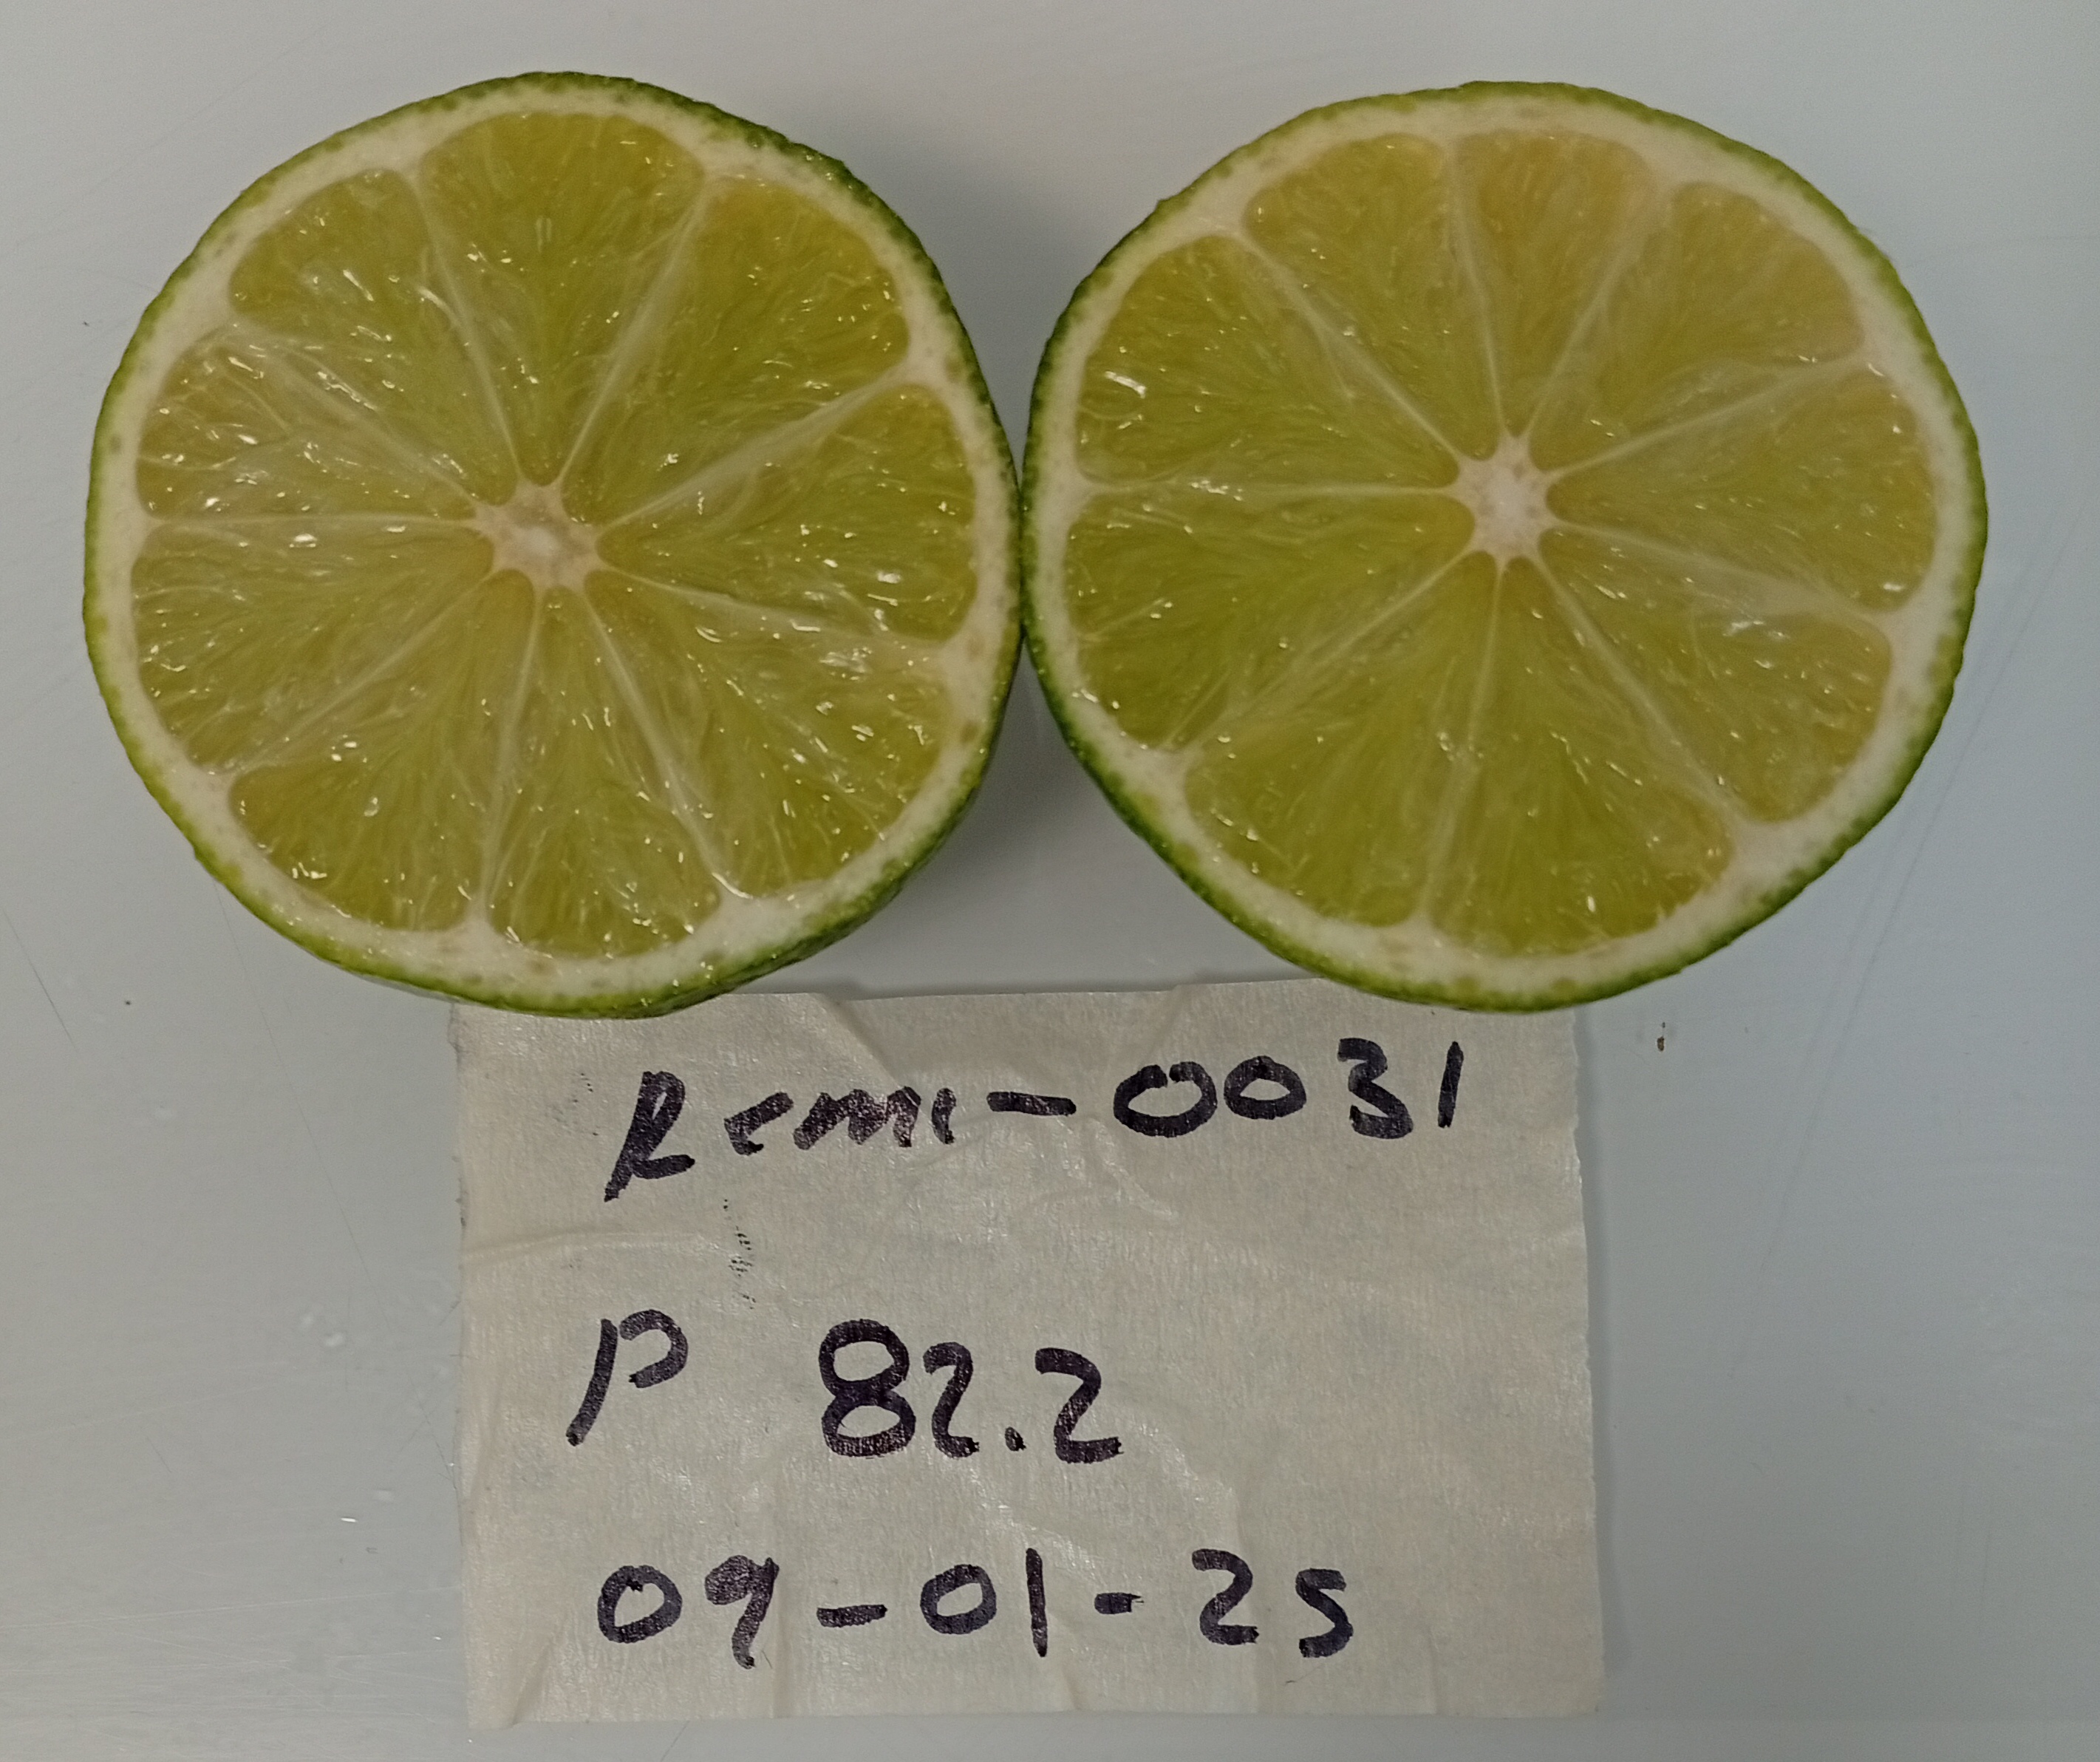 Remi-0031
P 82.2
09-01-25